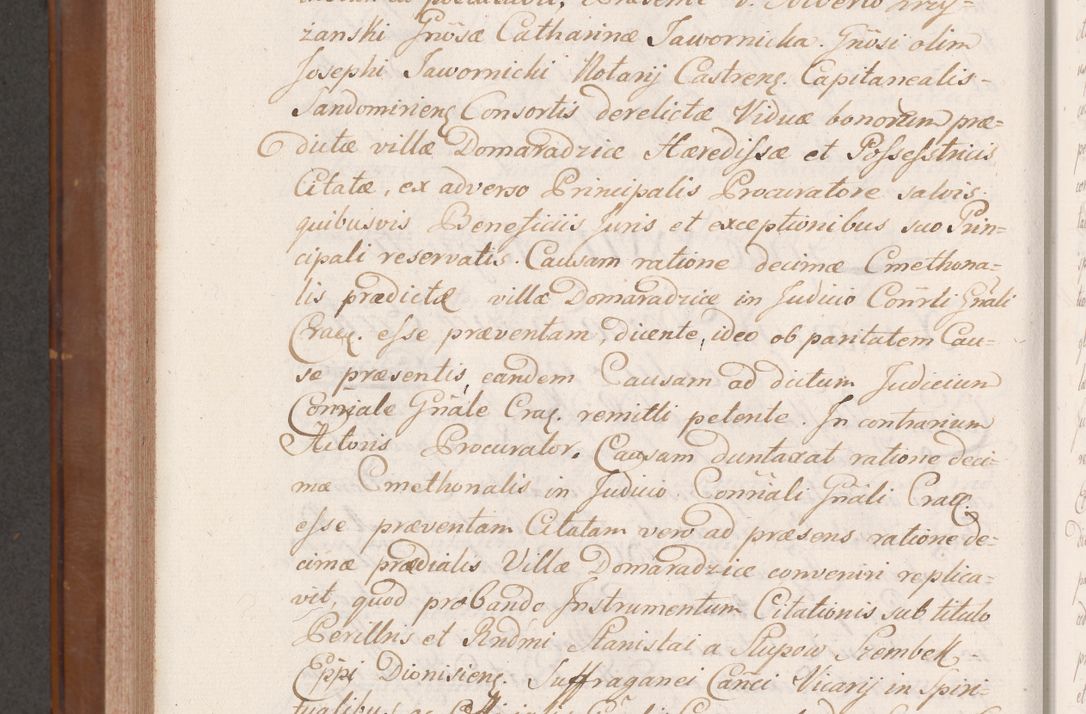 zanski Gnosæ Catharinæ Jawornicka. Gnosi olim
Josephi Jawornicki Notarij Castrenę. Capitanealis-
Sandomirienę Consortis derelictæ Viduæ bonorum præ=
dictæ villæ Domaradzice Hæredissæ et Possesstricis
Citatæ, ex adverso Principalis Procuratore salvis
quibusvis Beneficiis Juris et exceptionibus suo Prin=
cipali reservatis. Causam ratione decimæ Cmethona=
lis prædictæ villæ Domaradzice in Judicio Conrli Gnali
Cracę. esse præventam dicente, ideo ob paritatem Cau=
sæ præsentis, eandem Causam ad dictum Judicium
Conriale Gnale Crac. remitti petente. In contrarium
Actoris Procurator. Causam duntaxat ratione deci=
mæ Cmethonalis in Judicio Conriali Gnali Crac.
esse præventam Citatam vero ad præsens ratione de=
cimæ prædialis Villæ Domaradzice conveniri replica=
vit, quod probando Instrumentum Citationis sub titulo
Perillris et Rndmi Stanislai a Słupow Szembek -
Eppi Dionisienę. Suffraganei Canci Vicarij in Spiri=